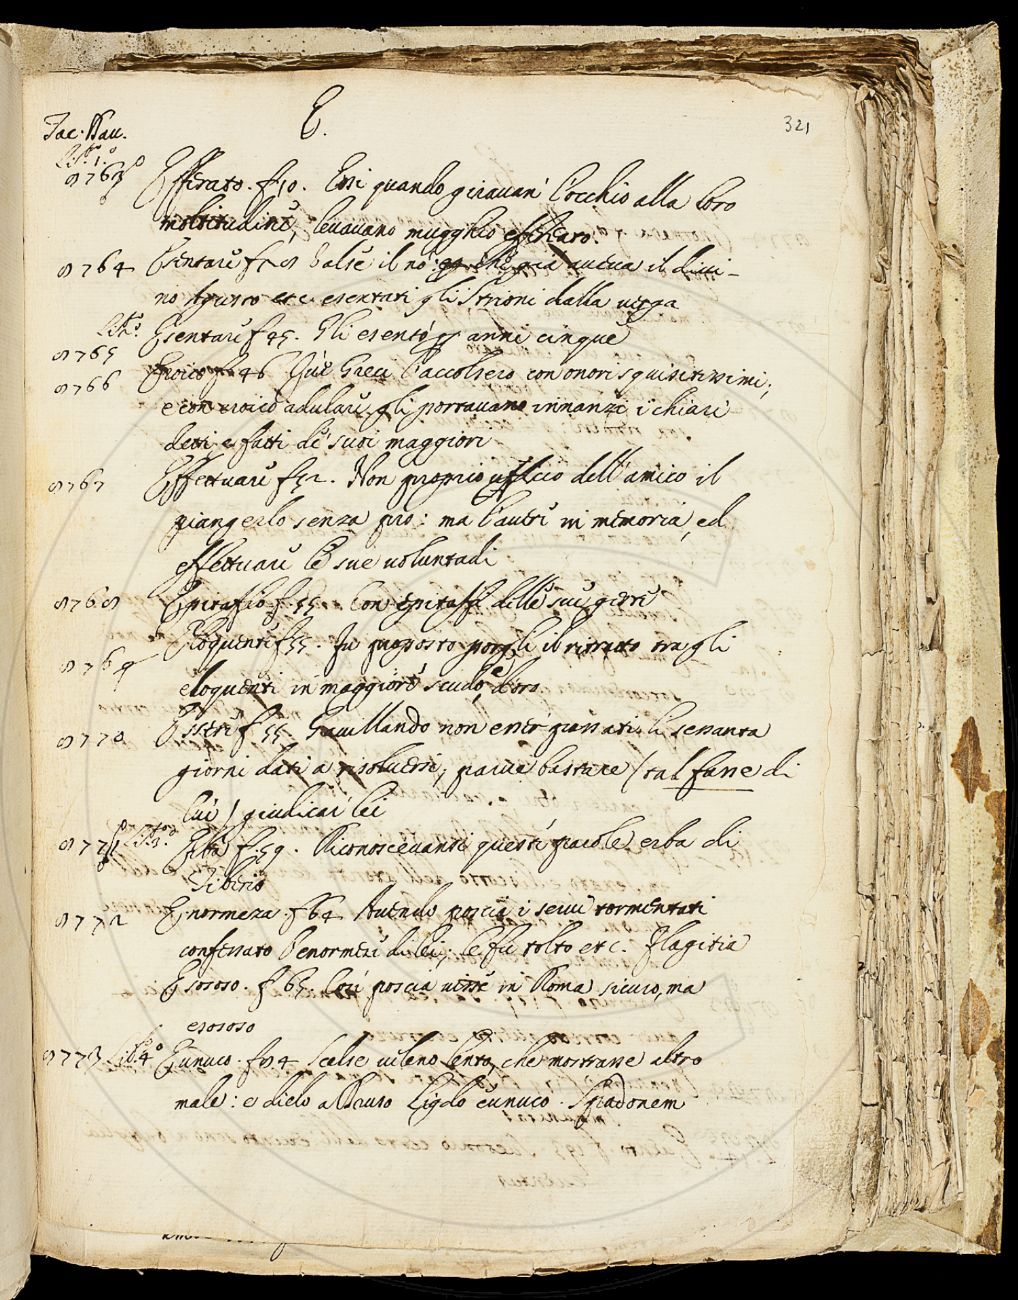 E.
321
Tac. Dav.
Lib.º 1.º
8763 Efferato. f 10. Essi quando giravan l'occhio alla loro
moltitudine, levavano mugghio efferato.
8764 Esentare f 28 Valse il nò: che già aveva il divi-
no Agusto etc. esentati gli Strioni dalla verga
8765 Esentare f 45. Gli esentò anni cinque
8766 Eroico f 46 Que' Greci l'accolsero con onori squisitissimi;
e con eroico adulare gli portavano innanzi i chiari
detti e fatti de' suoi maggiori
8767 Effettuare f 52. Non proprio ufficio dell'amico il
piangerlo senza prò: ma l'avere in memoria, ed
effettuare le sue voluntadi
8768 Epitaffio f. 55 Con epitaffi delle sue
8769 Eloquente f 55. Fu proposto porgli il ritratto tra gli
eloquenti in maggiore scudo, e d'oro.
8770 Essere f 55 Gavillando non esser passati li sessanta
giorni dati a risolversi, parve bastare (tal fusse di
lui) giudicar lei
8771 Lib. 3.º Erba f. 59. Riconoscevansi queste parole erba di
Tiberio
8772 Enormezza f 64 Avendo poscia i servi tormentati
confessato l'enormezze di lei; le fu tolto etc. Flagitia
Esososo. f 65. Così poscia visse in Roma sicuro, ma
esososo
8773 Lib. 4.º Eunuco. f 84 Scelse veleno lento, che mostrasse altro
male: e dielo a Druso Ligdo eunuco. Spadonem